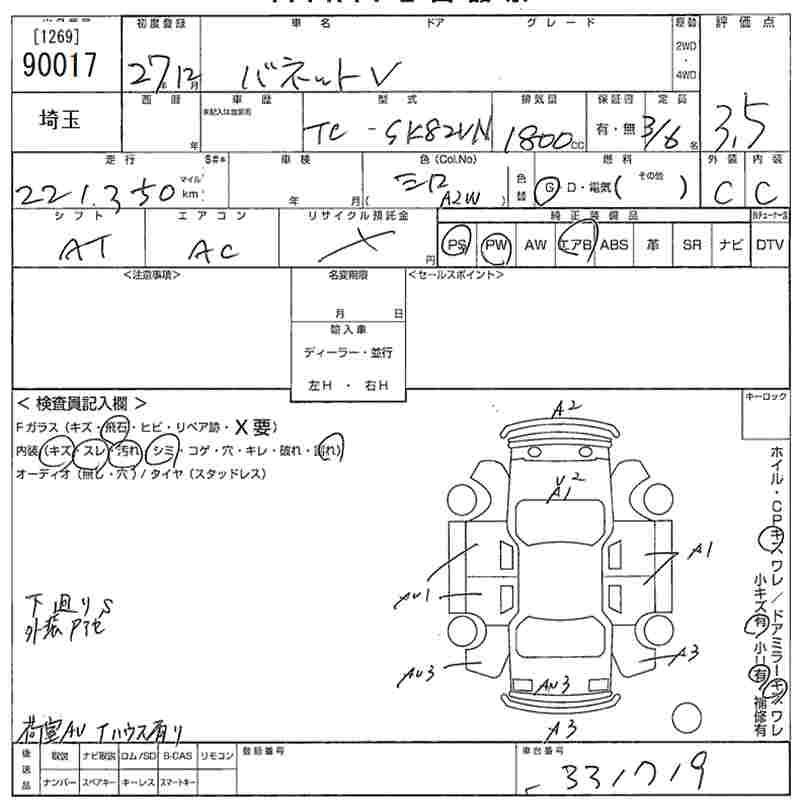 [1269]
90017
初度登録 車名 ドア グレード 駆動 評価点
27年12月 バネットV 2WD・4WD
3.5
埼玉
西暦 車歴 型式 排気量 保証書 定員
年 未記入は自家用 TC-SK82VN 1800cc 有・無 3/6名
走行 S#* 車検 色(Col.No) 色替 燃料 外装 内装
221,350 マイル km 年 月( シロ A2W ) G・D・電気( その他 ) C C
シフト エアコン リサイクル預託金 純正装備品
AT AC 円 PS PW AW エアB ABS 革 SR ナビ DTV
<注意事項> 名変期限 <セールスポイント>
月 日
輸入車
ディーラー・並行
左H・右H
<検査員記入欄> キーロック
Fガラス(キズ・飛石・ヒビ・リペア跡・X要)
内装(キズ・スレ・汚れ・シミ・コゲ・穴・キレ・破れ・割れ)
オーディオ(無し・穴)/タイヤ(スタッドレス)
A2
U2
A1
A1
AU1
AU3
A3
AU3
A3
ホイル・CPキズワレ/ドアミラーキズワレ
小キズ有 小U有 補修有
下廻りS
外装Pアセ
荷室AU Tハウス有り
後送品 取説 ナビ取説 ロム/SD B-CAS リモコン 登録番号 車台番号
ナンバー スペアキー キーレス スマートキー -331719